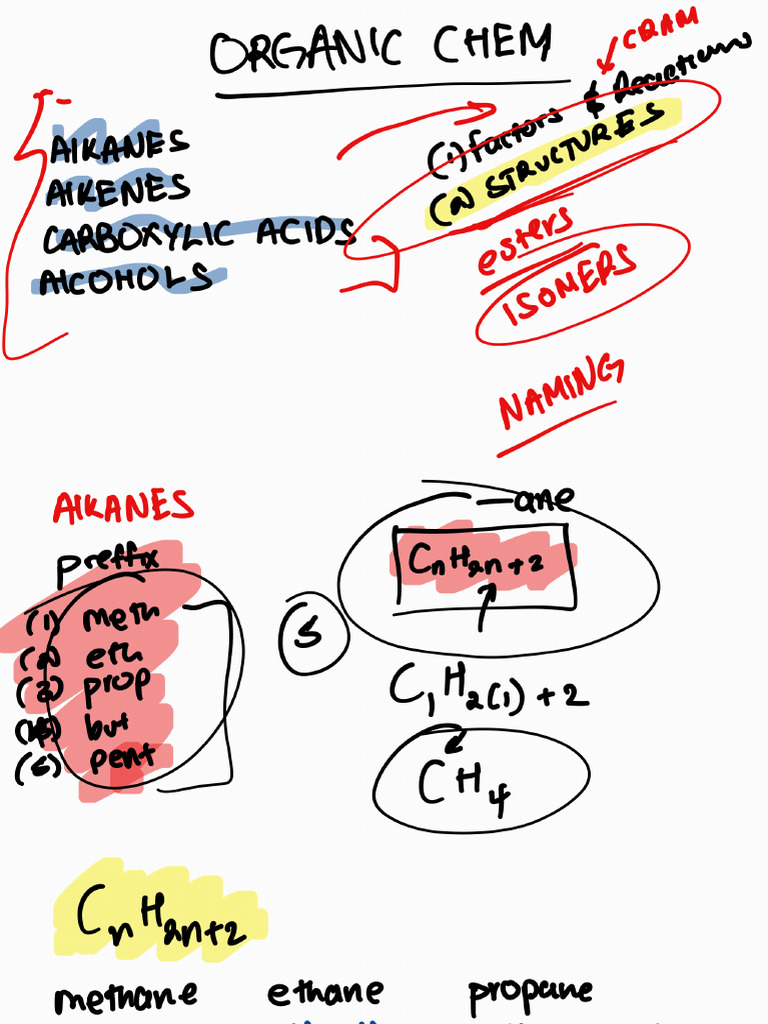 ORGANIC CHEM
CRAM
(1) factors & Reactions
(2) STRUCTURES
AlKANES
AlKENES
CARBOXYLIC ACIDS
AlCOHOLS
esters
ISOMERS
NAMING
AlKANES
preffix
(1) meth
(2) eth
(3) prop
(4) but
(5) pent
5
—ane
CnH2n+2
C1H2(1)+2
CH4
CnH2n+2
methane ethane propane